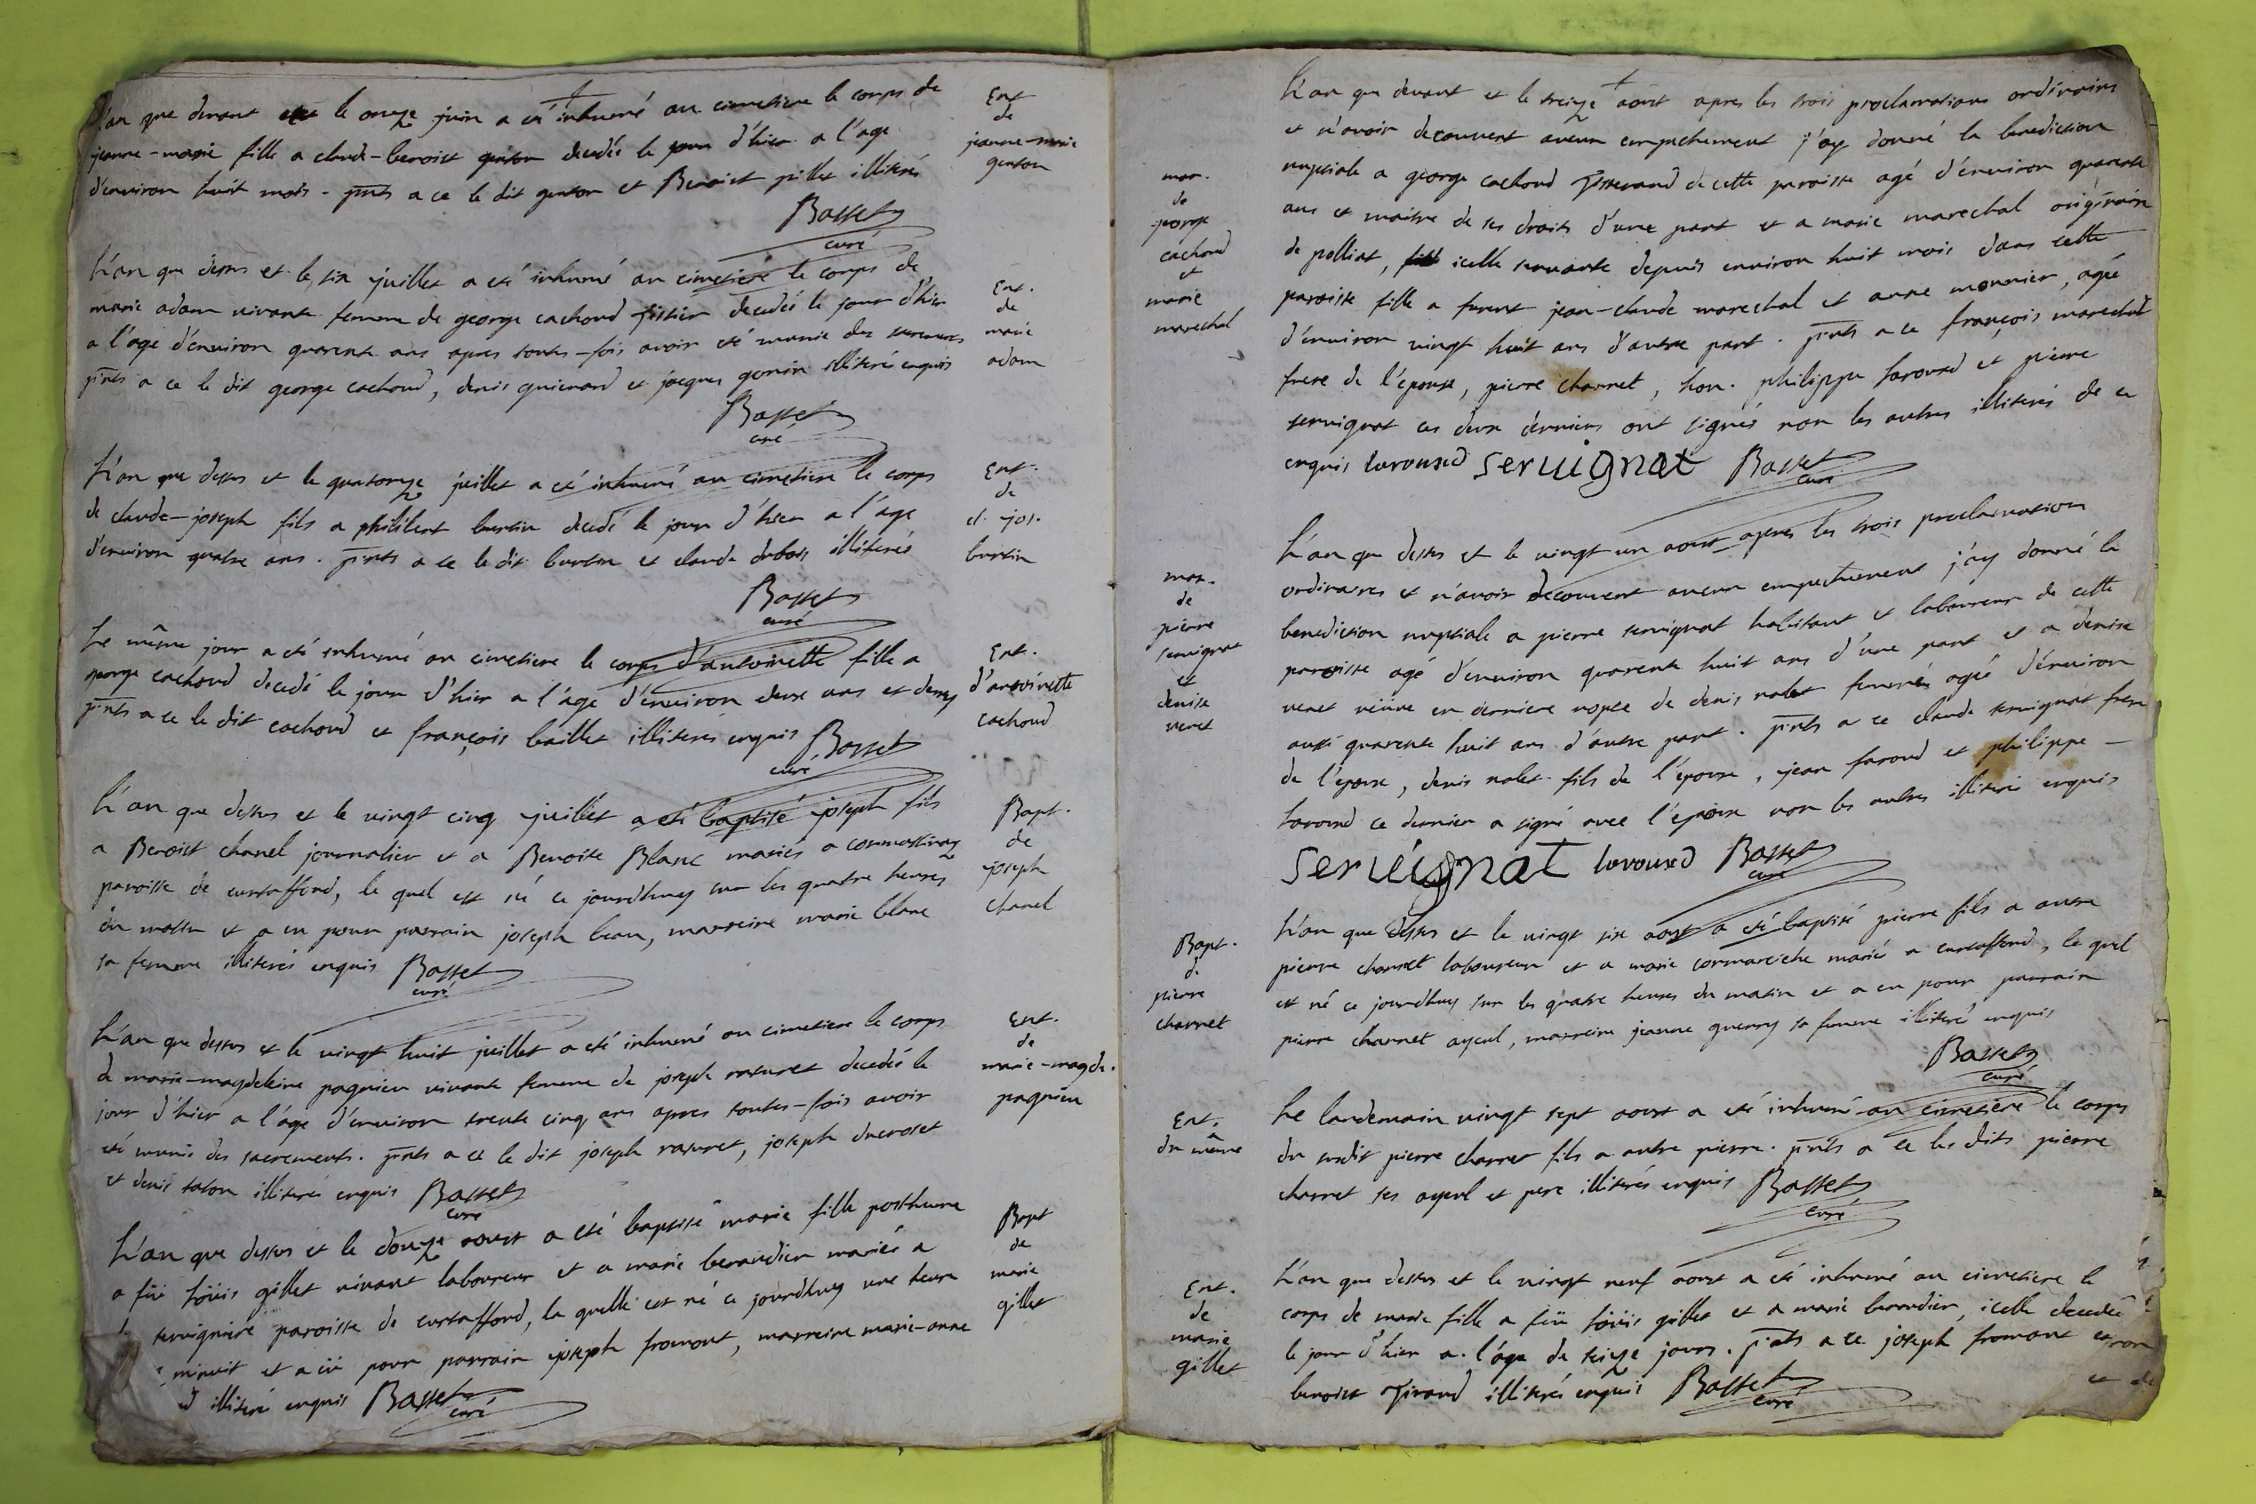 L'an que devant et le onze juin a eté inhumé au cimetiere le corps de
jeanne-marie fille a claude-benoist genton decedée le jour d'hier a l'age
d'environ huit mois. pnts a ce le dit genton et Benoist pillet illiterés
Basset
curé
Ent
de
jeanne-marie
genton
L'an que dessus et le six juillet a eté inhumé au cimetiere le corps de
marie adam vivante femme de george cachoud decedée le jour d'hier
a l'age d'environ quarente ans apres toutes-fois avoir eté munie des sacremens
pnts a ce le dit george cachoud, denis guienard et jacques genin illiterés enquis
Basset
curé
Ent.
de
marie
adam
L'an que dessus et le quatorze juillet a eté inhumé au cimetiere le corps
de claude-joseph fils a philibert burtin decedé le jour d'hier a l'age
d'environ quatre ans. pnts a ce le dit burtin et claude dubois illiterés
Basset
curé
Ent.
de
cl. jos.
burtin
Le même jour a eté inhumé au cimetiere le corps d'antoinette fille a
george cachoud decedé le jour d'hier a l'age d'environ deux ans et demy
pnts a ce le dit cachoud et françois baillet illiterés enquis Basset
curé
Ent.
d'antoinette
cachoud
L'an que dessus et le vingt cinq juillet a eté baptisé joseph fils
a Benoist chanel journalier et a Benoite Blanc mariés a cormassinay
paroisse de curtaffond, le quel est né ce jourdhuy sur les quatre heures
du mattin et a eu pour parrain joseph beau, marreine marie blanc
sa femme illiterés enquis Basset
curé
Bapt.
de
joseph
chanel
L'an que dessus et le vingt huit juillet a eté inhumé au cimetiere le corps
de marie-magdeleine pagnieu vivante femme de joseph rasuret decedée le
jour d'hier a l'age d'environ trente cinq ans apres toutes-fois avoir
eté munie des sacrements. pnts a ce le dit joseph rasuret, joseph ducroset
et denis taton illiterés enquis Basset
curé
Ent.
de
marie-magde.
pagnieu
L'an que dessus et le douze aoust a eté baptisé marie fille posthume
a fëu löuis gillet vivant laboureur et a marie beraudier mariés a
servigniere paroisse de curtaffond, la quelle est né ce jourdhuy une heure
minuit et a ëu pour parrain joseph fromont, marreine marie-anne
illiteré enquis Basset
curé
Bapt
de
marie
gillet
L'an que devant et le treize aoust apres les trois proclamations ordinaires
et n'avoir decouvert aucun empechement j'ay donné la benediction
nuptiale a george cachoud Tisserand de cette paroisse agé d'environ quarente
ans et maitre de ses droits d'une part et a marie marechal originaire
de polliat, icelle servante depuis environ huit mois dans cette
paroisse fille a furent jean-claude marechal et anne monnier, agée
d'environ vingt huit ans d'autre part. pnts a ce françois marechal
frere de l'epouse, pierre charnet, hon. philippe taroud et pierre
servignat ces deux derniers ont signés non les autres illiterés de ce
enquis taroud seruignat Basset
curé
mar.
de
george
cachoud
et
marie
marechal
L'an que dessus et le vingt un aoust apres les trois proclamation
ordinaires et n'avoir decouvert aucun empechement j'ay donné la
benediction nuptiale a pierre servignat habitant et laboureur de cette
paroisse agé d'environ quarente huit ans d'une part et a denise
veret vëuve en derniere nopse de denis nalet agée d'environ
aussi quarente huit ans d'autre part. pnts a ce claude servignat frere
de l'epoux, denis nalet fils de l'epouse, jean taroud et philippe
taroud ce dernier a signé avec l'epoux non les autres illiteré enquis
seruignat taroud Basset
curé
mar.
de
pierre
servignat
et
denise
veret
L'an que dessus et le vingt six aoust a eté baptisé pierre fils a autre
pierre charnet laboureur et a marie cormareche mariés a curtaffond, le quel
est né ce jourdhuy sur les quatre heures du matin et a eu pour parrain
pierre charnet ayeul, marreine jeanne guerry sa femme illiteré enquis
Basset
curé
Bapt.
de
pierre
charnet
Le landemain vingt sept aoust a eté inhumé au cimetiere le corps
du susdit pierre charnet fils a autre pierre. pnts a ce les dits pierre
charnet ses ayeul et pere illiterés enquis Basset
curé
Ent.
du même
L'an que dessus et le vingt neuf aoust a eté inhumé au cimetiere le
corps de marie fille a fëu löuis gillet et a marie beraudier, icelle decedée
le jour d'hier a l'âge de seize jours. pnts a ce joseph fromont et
benoist Tirand illiterés enquis Basset
curé
Ent.
de
marie
gillet